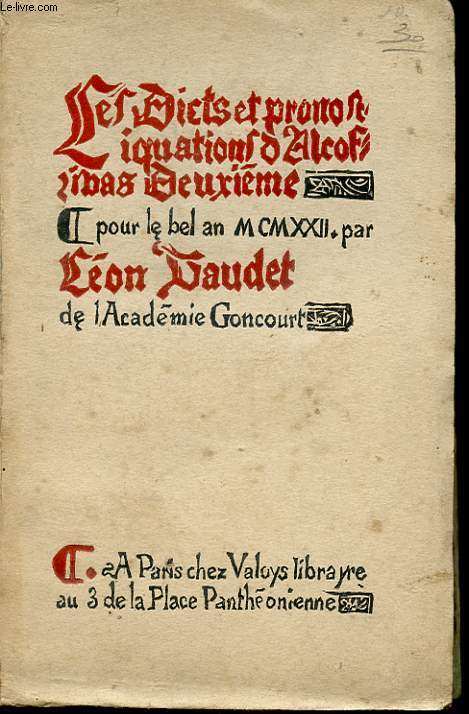 Le-livre.com
30
Les Dicts et pronost-
iquations d'Alcof-
ribas Deuxième
pour le bel an MCMXXII. par
Léon Daudet
de l'Académie Goncourt
A Paris chez Valoys librayre
au 3 de la Place Panthéonienne